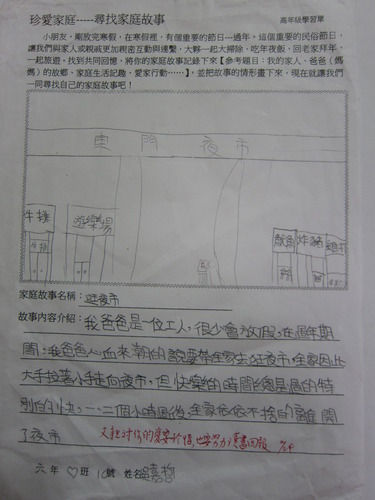 珍愛家庭-----尋找家庭故事
高年級學習單
小朋友，剛放完寒假，在寒假裡，有個重要的節日---過年。這個重要的民俗節日，
讓我們與家人或親戚更加親密互動與連繫，大夥一起大掃除、吃年夜飯、回老家拜年、
一起旅遊。找到共同回憶，將你的家庭故事記錄下來【參考題目：我的家人、爸爸（媽
媽）的故鄉、家庭生活記趣、愛家行動……】，並把故事的情形畫下來，現在就讓我們
一同尋找自己的家庭故事吧！
東門夜市
牛排
遊樂場
魷魚
炸豬
雞排
牛排
家庭故事名稱：逛夜市
故事內容介紹：我爸爸是一位工人，很少會放假，在過年期
間，我爸爸心血來潮的說要帶全家去逛夜市，全家因此
大手拉著小手走向夜市，但快樂的時間總是過的特
別的快，一、二個小時過後，全家依依不捨的離開
了夜市
父親對你的愛要珍惜，也要努力讀書回報
六年♡班 16號 姓名